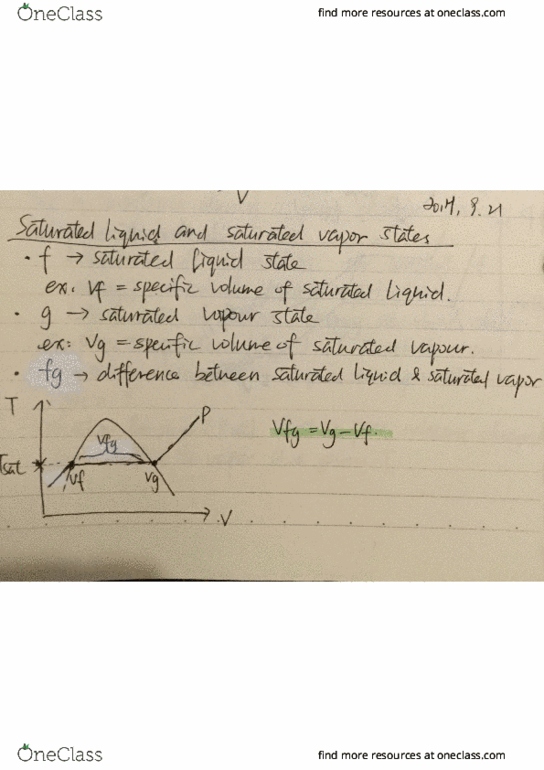 OneClass
find more resources at oneclass.com
V
2017, 9. 21
Saturated liquid and saturated vapor states
• f → saturated liquid state
ex: vf = specific volume of saturated liquid.
• g → saturated vapour state
ex: vg = specific volume of saturated vapour.
• fg → difference between saturated liquid & saturated vapor
T
P
Vfg = Vg - Vf.
Vfg
Tsat
Vf
Vg
V
OneClass
find more resources at oneclass.com